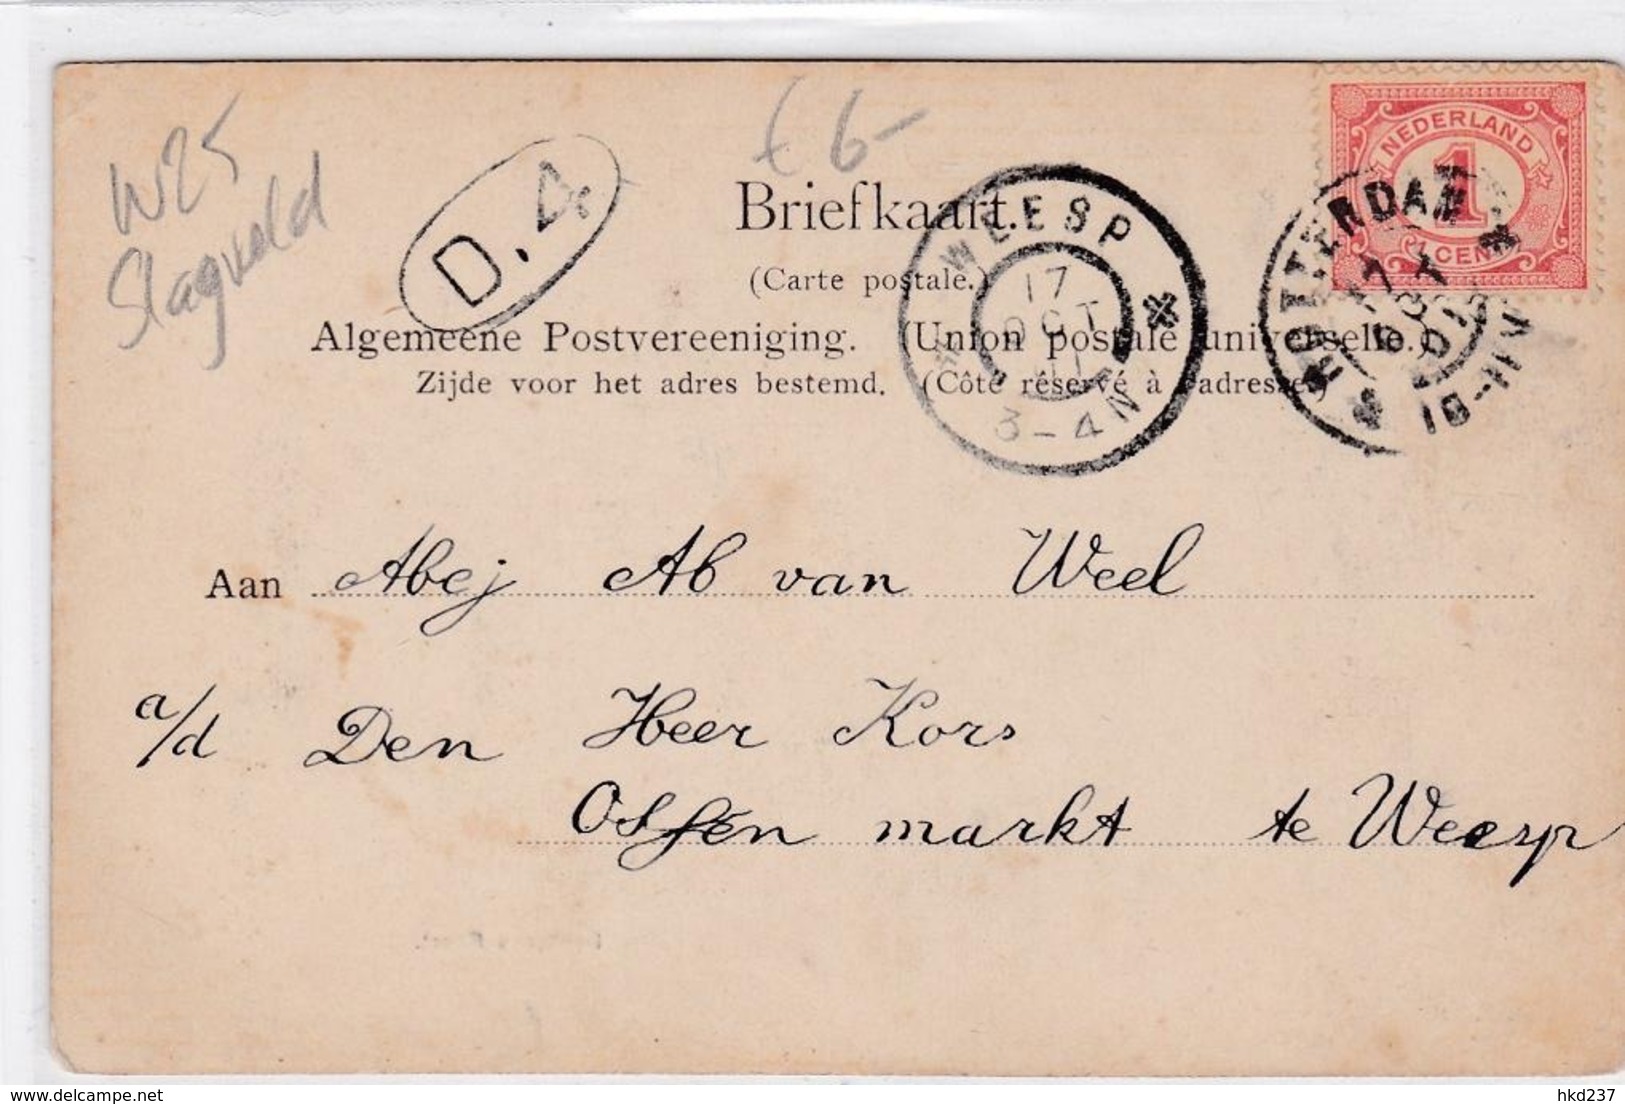 W25
Slagveld
D. 4.
€ 6-
Briefkaart.
(Carte postale.)
Algemeene Postvereeniging. (Union postale universelle.)
Zijde voor het adres bestemd. (Côté réservé à l'adresse.)
WEESP
17
OCT
01
3-4N
NEDERLAND
1
1 CENT
ROTTERDAM
17
OCT
01
10-11V
Aan Abej Ab van Weel
a/d Den Heer Kors
Ossen markt te Weesp
www.delcampe.net
hkd237